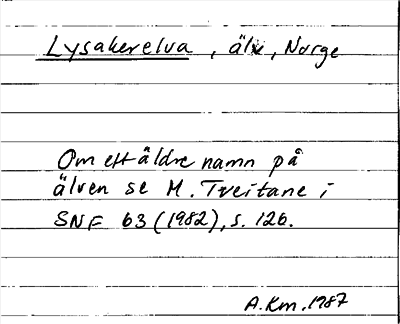 Lysakerelva, älv, Norge
Om ett äldre namn på
älven se M. Tveitane i
SNF 63 (1982), s. 126.
A.Km. 1987